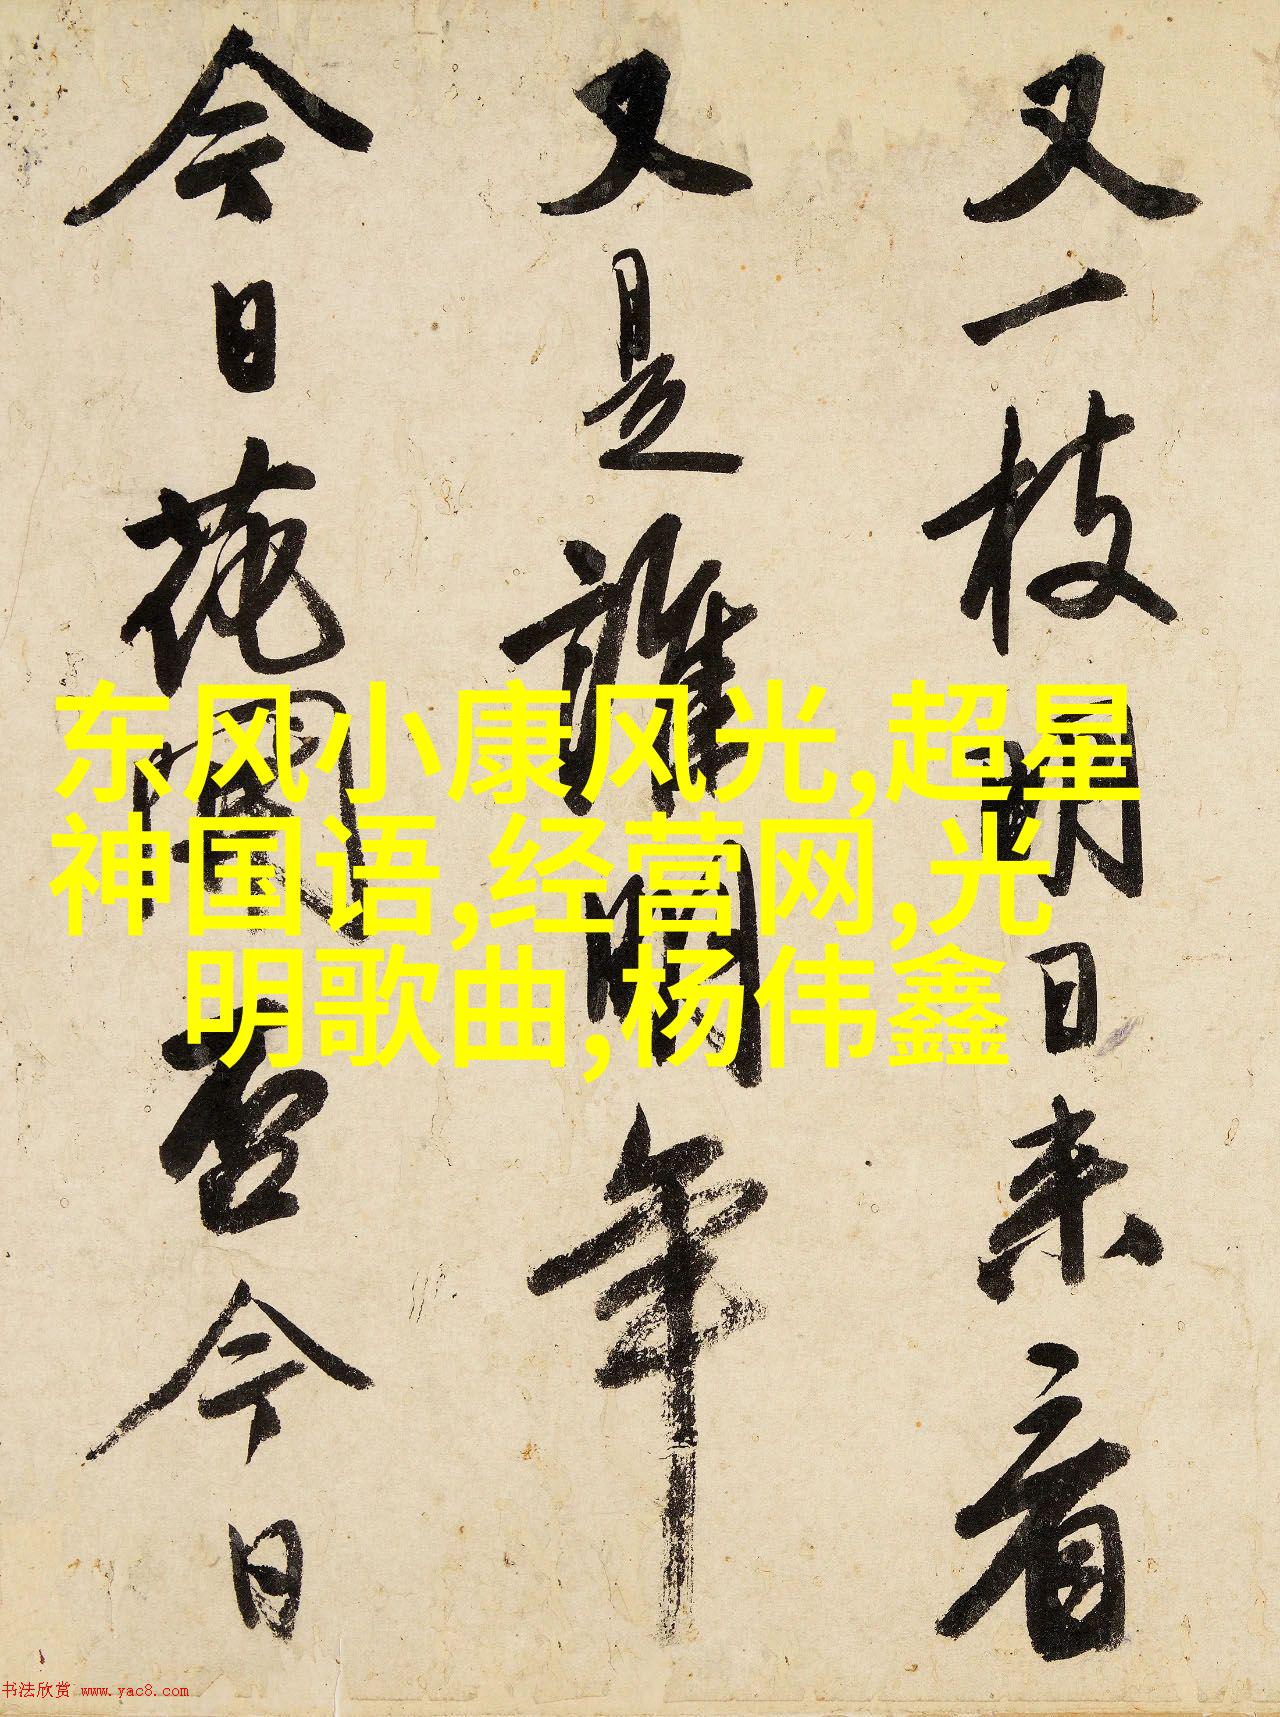 又一枝明日来看
又是誰明年
今日花開否今日
东风小康风光,超星
神国语,经营网,光
明歌曲,杨伟鑫
书法欣赏 www.yac8.com